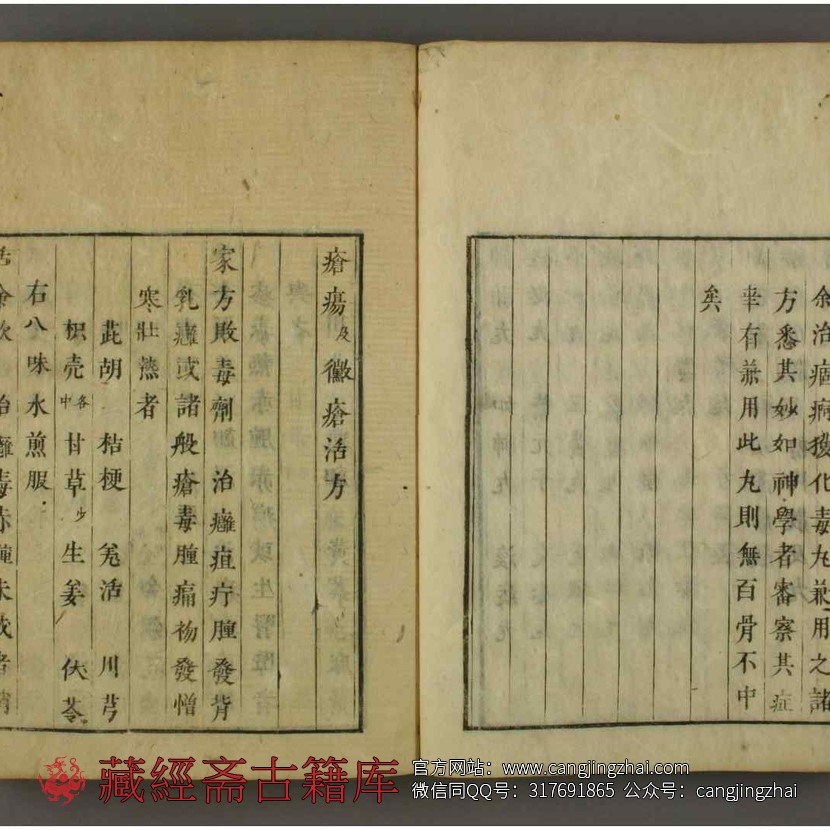 余治痼病獲化毒丸兼用之諸
方悉其妙如神學者審察其症
幸有兼用此丸則無百骨不中
矣
瘡瘍及黴瘡活方
家方敗毒劑 治癰疽疔腫發背
乳癰或諸般瘡毒腫痛初發憎
寒壯熱者
茈胡 桔梗 羌活 川芎
枳壳各中 甘草少 生姜 伏苓
右八味水煎服
藏經斋古籍库
官方网站：www.cangjingzhai.com
微信同QQ号：317691865 公众号：cangjingzhai